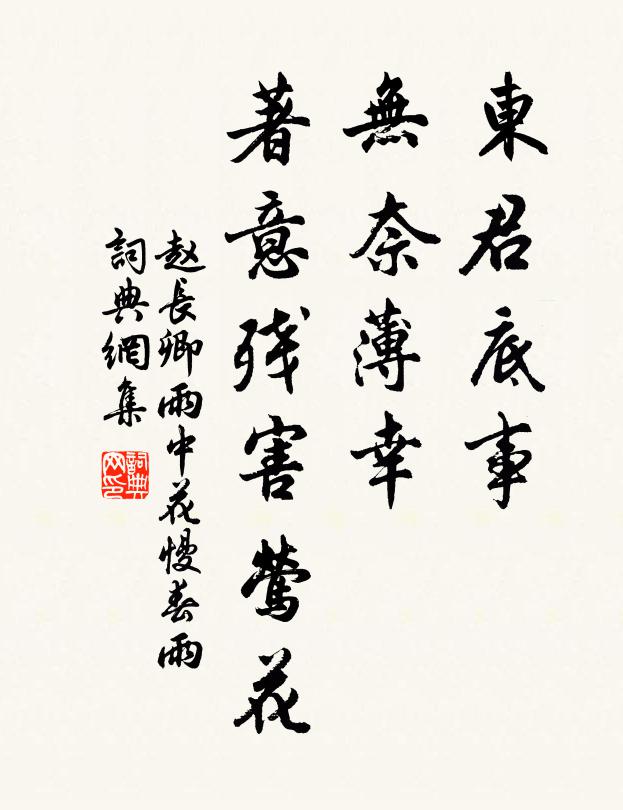 東君底事
無奈薄幸
著意残害鶯花
赵長卿雨中花慢春雨
詞典網集
詞典网印